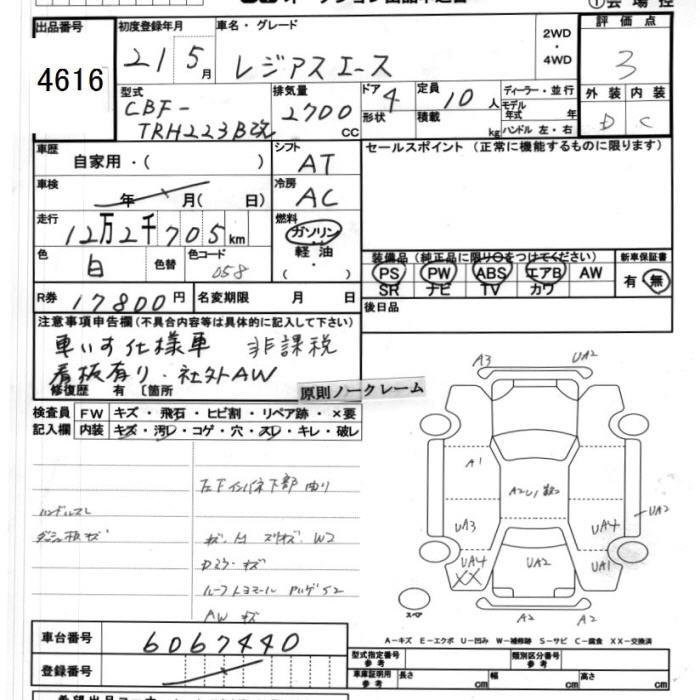 出品番号
4616
初度登録年月
21 5月
車名・グレード
レジアスエース
2WD
・
4WD
評価点
3
外装 内装
D C
型式
CBF-
TRH223B改
排気量
2700
CC
ドア
4
形状
定員
10人
積載
kg
ディーラー・並行
モデル
年式 年
ハンドル 左・右
車歴
自家用・( )
シフト
AT
セールスポイント (正常に機能するものに限ります)
車検
年 月( 日)
冷房
AC
走行
12万2千705km
燃料
ガソリン
・
軽油
( )
色
白
色替
色コード
058
装備品 (純正品に限り○をつけてください)
PS PW ABS エアB AW
SR ナビ TV カワ
新車保証書
有・無
R券
17800円
名変期限 月 日
後日品
注意事項申告欄(不具合内容等は具体的に記入して下さい)
車いす仕様車 非課税
看板有り・社外AW
修復歴 有 〔箇所
原則ノークレーム
検査員
記入欄
FW キズ・飛石・ヒビ割・リペア跡・×要
内装 キズ・汚レ・コゲ・穴・スレ・キレ・破レ
ハンドルスレ
AW キズ
A3
UA2
A1
UA3
UA4
XX
UA2
UA4
UA1
UA2
A2
A2
スペア
A-キズ E-エクボ U-凹み W-補修跡 S-サビ C-腐食 XX-交換済
車台番号
6067440
登録番号
型式指定番号
参考
類別区分番号
参考
車庫証明用
参考
長さ cm
幅 cm
高さ cm